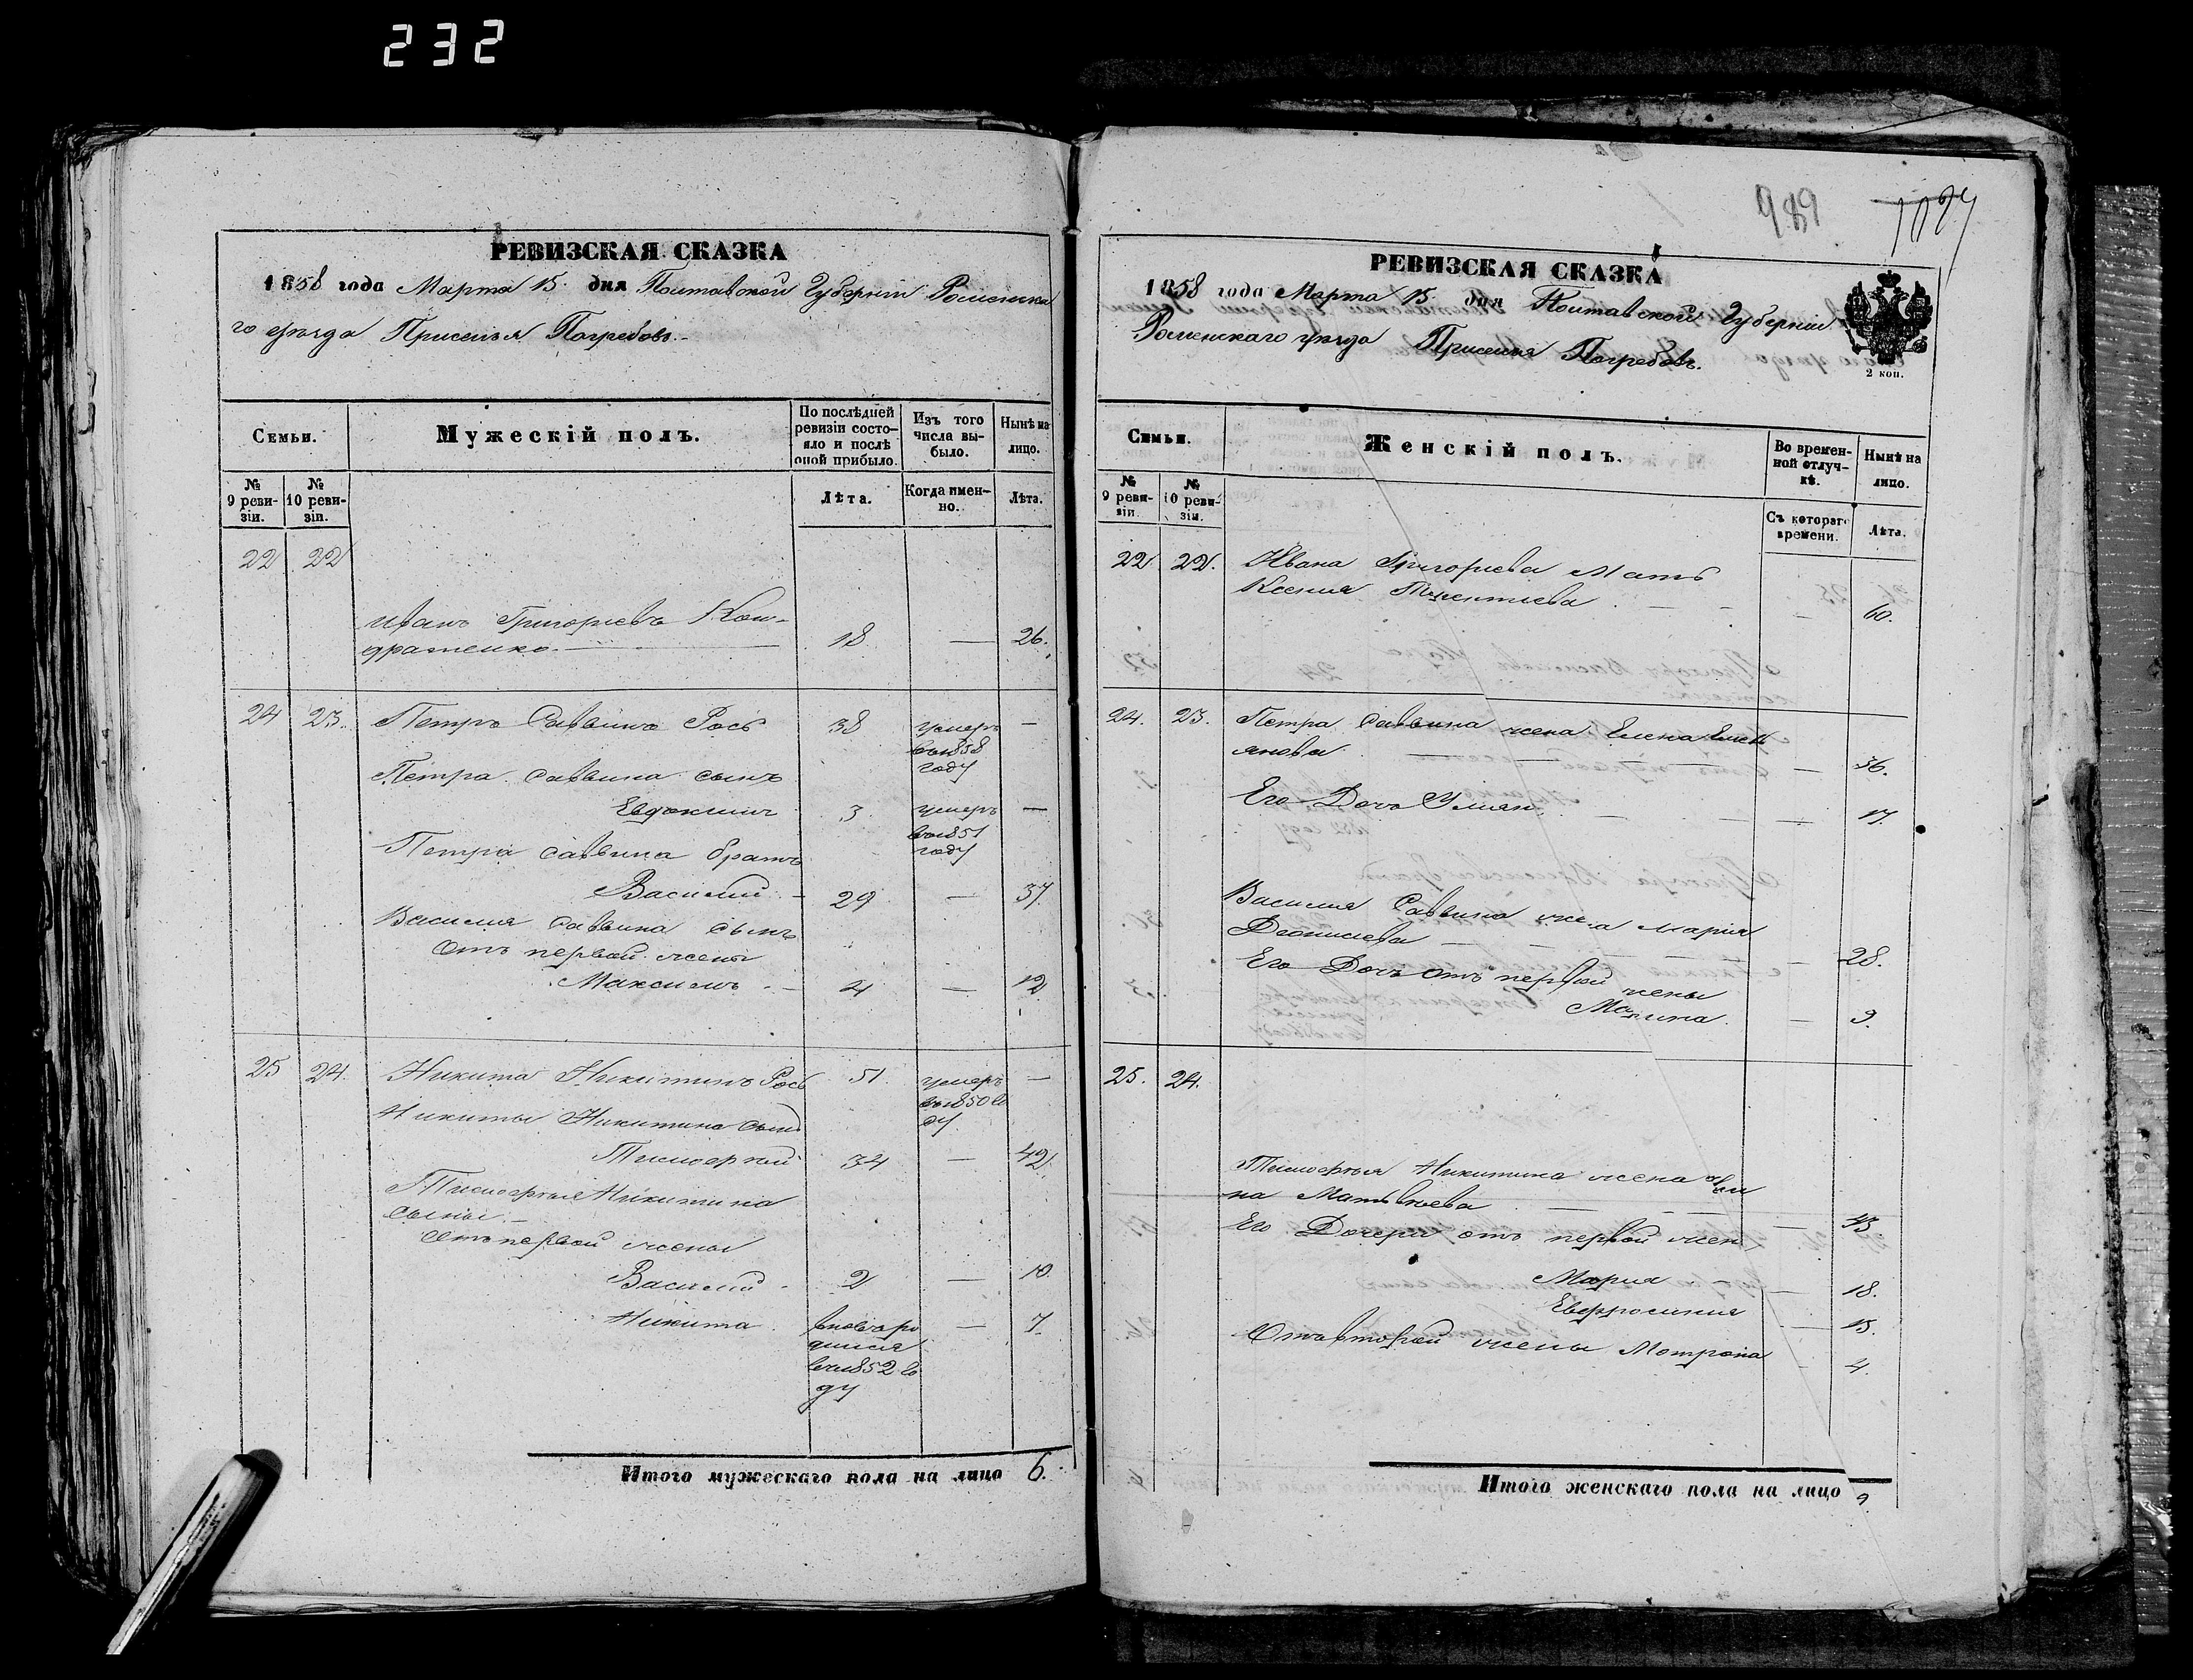 232
РЕВИЗСКАЯ СКАЗКА
1858 года Марта 15 дня Полтавской Губернии Роменска
го уезда Приселья Погребовъ.
Семьи.
Мужескій полъ.
По послѣдней ревизіи состо-
яло и послѣ оной прибыло.
Изъ того числа вы-
было.
Нынѣ на лицо.
№ 9 реви-
зіи.
№ 10 реви-
зіи.
Лѣта.
Когда имен-
но.
Лѣта.
22 22
Иванъ Григорьевъ Кон-
дратенко. 18 — 26.
24 23. Петръ Саввинъ Рось 38 умеръ —
въ 1858
году
Петра Саввина сынъ
Евдокимъ 3. умеръ —
въ 1851
году
Петра Саввина братъ
Василий 29 — 37.
Василия Саввина сынъ
Отъ первой жены
Максимъ 4 — 12
25 24. Никита Никитинъ Рось 51. умеръ —
въ 1850 го
ду
Никиты Никитина сынъ
Тимофей 34 — 42.
Тимофея Никитина
Сыны
Отъ первой жены
Василий 2 — 10.
Никита вново ро — 7.
дился
въ 1852 го
ду
Итого мужескаго пола на лицо 6.
989 1027
РЕВИЗСКАЯ СКАЗКА
1858 года Марта 15 дня Полтавской Губернии
Роменскаго уезда Приселья Погребовъ.
2 коп.
Семьи.
Женскій полъ.
Во времен-
ной отлуч-
кѣ.
Нынѣ на лицо.
№ 9 реви-
зіи
№ 10 реви-
зіи.
Съ котораго
времени.
Лѣта.
22 22. Ивана Григорьева Мать
Ксения Терентиева — 60.
24. 23. Петра Саввина жена Елена Емель
янова — 36.
Его Дочь Улиян. — 17.
Василия Саввина жена Мария
Дионисиева — 28.
Его Дочь отъ первой жены
Марина — 9.
25. 24.
Тимофея Никитина жена
на Матвеева — 43.
Его Дочери отъ первой жен,
Мария — 18.
Евфросиния — 15.
Отъ второй жены Мотрона — 4.
Итого женскаго пола на лицо 9.